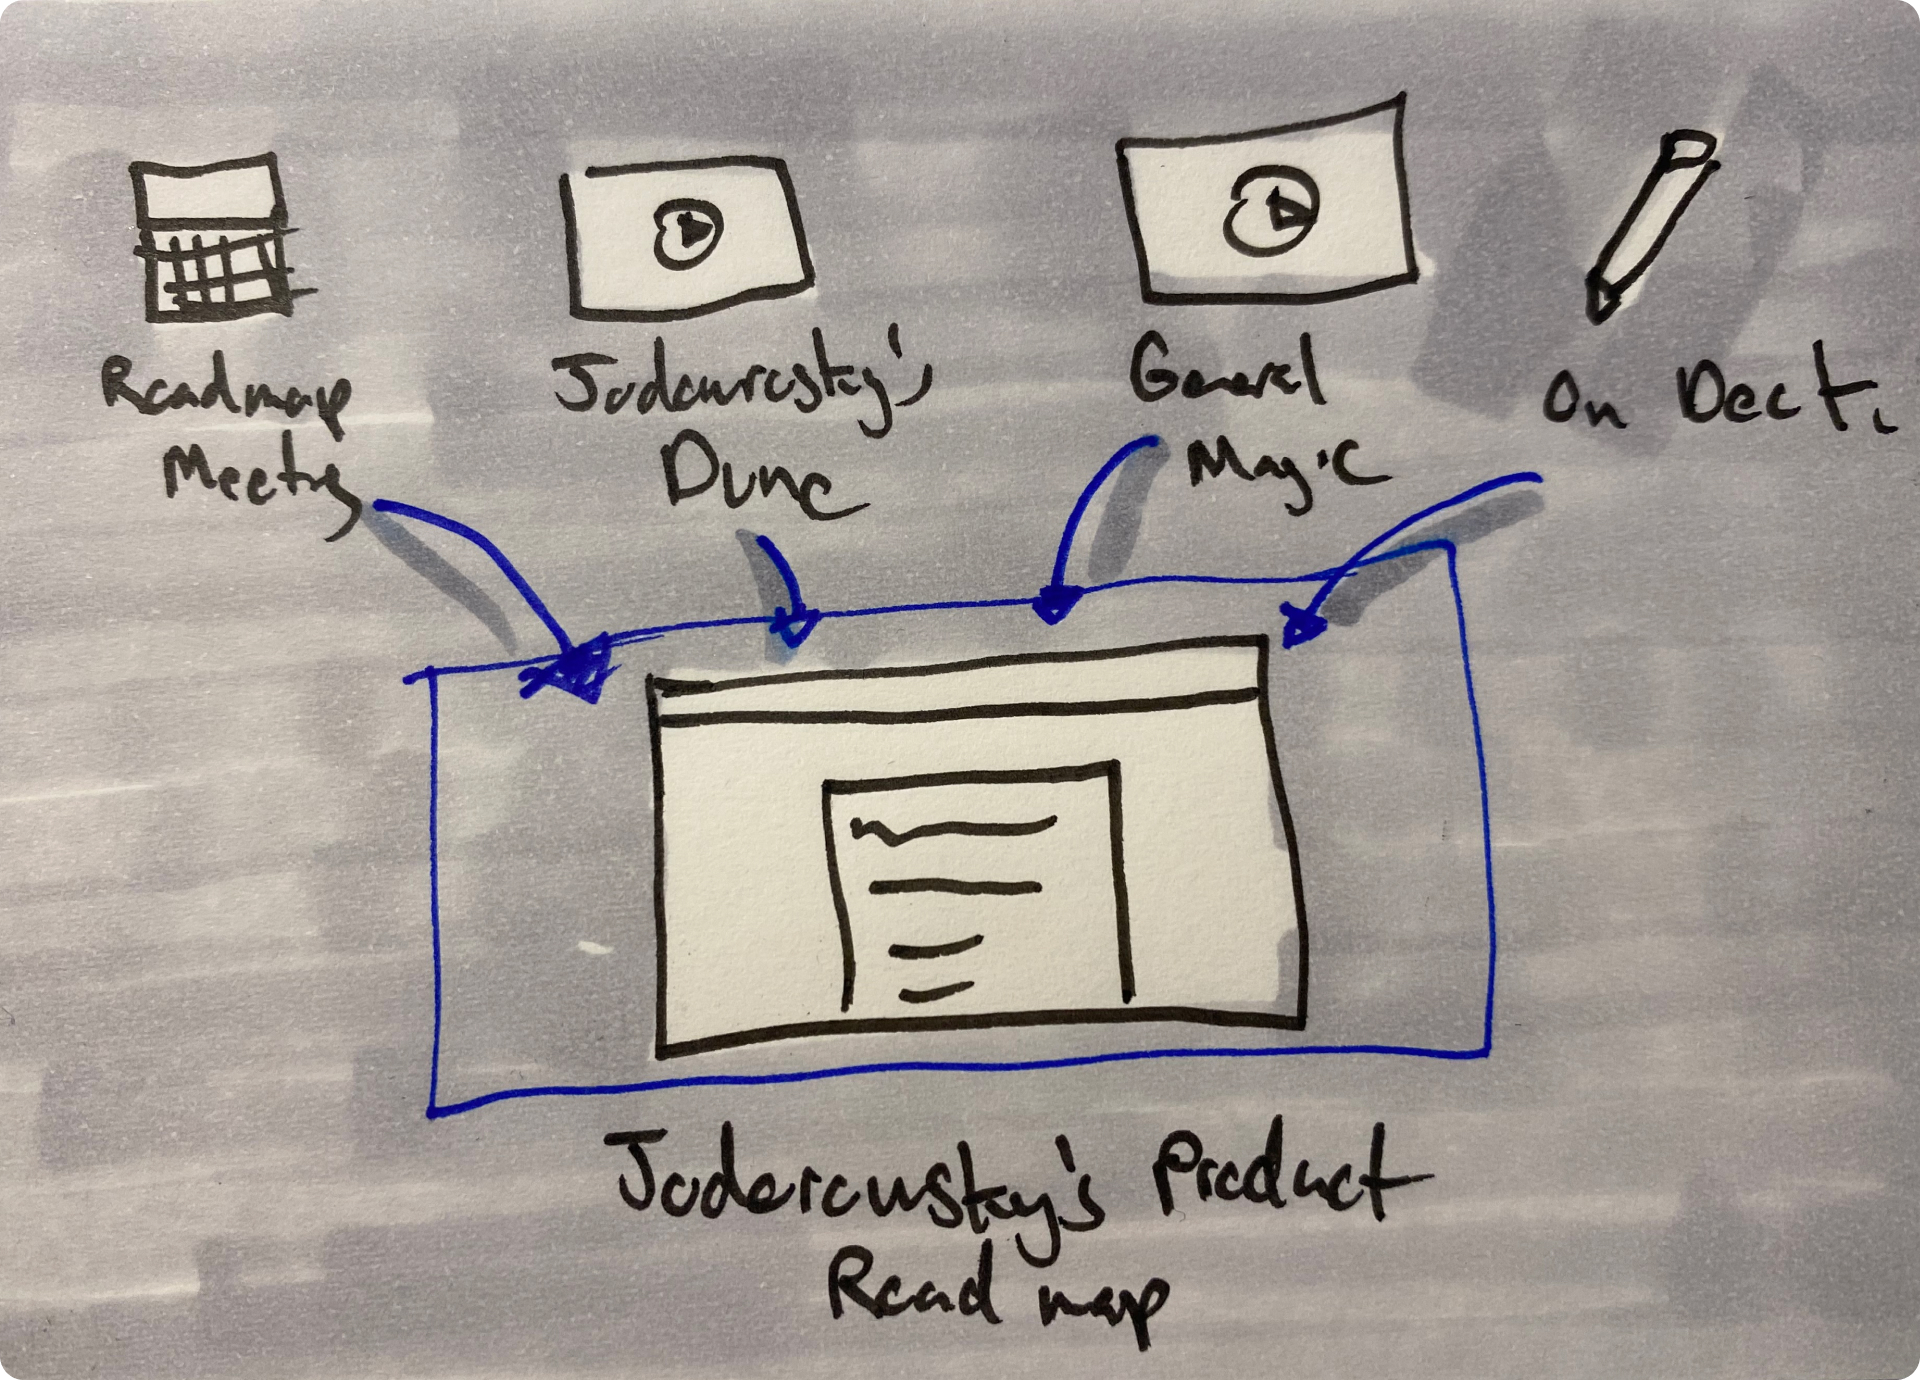 Roadmap
Meeting
Jodowrosky's
Dune
General
Magic
On Deck.
Joderowsky's Product
Road map